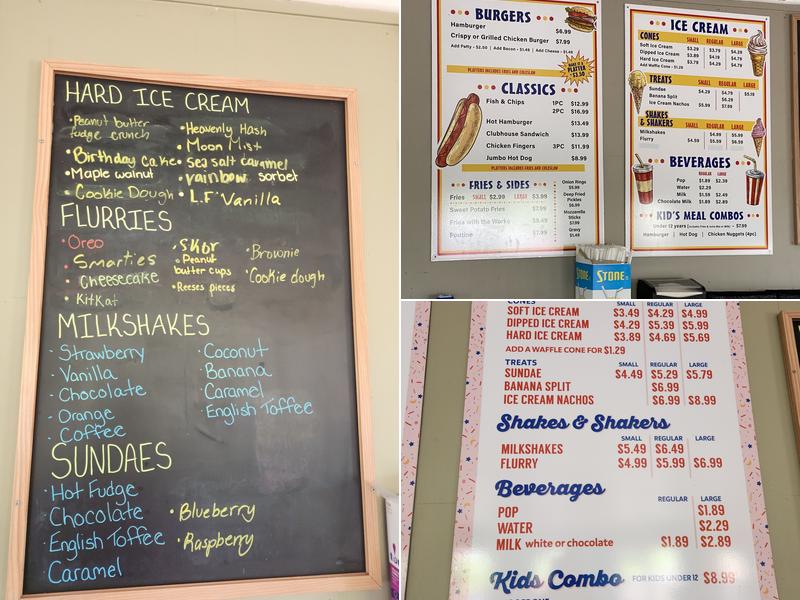 HARD ICE CREAM
• Peanut butter fudge crunch
• Birthday Cake
• Maple walnut
• Cookie Dough
• Heavenly Hash
• Moon Mist
• sea salt caramel
• rainbow sorbet
• L.F. Vanilla
FLURRIES
• Oreo
• Smarties
• Cheesecake
• KitKat
• Skor
• Peanut butter cups
• Reeses pieces
• Brownie
• Cookie dough
MILKSHAKES
• Strawberry
• Vanilla
• Chocolate
• Orange
• Coffee
• Coconut
• Banana
• Caramel
• English Toffee
SUNDAES
• Hot Fudge
• Chocolate
• English Toffee
• Caramel
• Blueberry
• Raspberry
BURGERS
Hamburger $6.99
Crispy or Grilled Chicken Burger $7.99
Add Patty - $2.50 | Add Bacon - $1.49 | Add Cheese - $1.49
MAKE IT A PLATTER $3.50
PLATTERS INCLUDES FRIES AND COLESLAW
CLASSICS
Fish & Chips 1PC $12.99
2PC $16.99
Hot Hamburger $13.49
Clubhouse Sandwich $13.99
Chicken Fingers 3PC $11.99
Jumbo Hot Dog $8.99
PLATTERS INCLUDES FRIES AND COLESLAW
FRIES & SIDES
Fries SMALL $2.99 LARGE $3.99
Sweet Potato Fries $7.99
Fries with the Works
Poutine
Onion Rings
$5.99
Deep Fried Pickles
Mozzarella Sticks
$7.99
Gravy
$1.49
ICE CREAM
CONES SMALL REGULAR LARGE
Soft Ice Cream $3.29 $3.79 $4.29
Dipped Ice Cream $3.89 $4.29 $4.79
Hard Ice Cream $3.79 $4.29 $4.79
Add Waffle Cone - $1.29
TREATS SMALL REGULAR LARGE
Sundae $4.29 $4.79 $5.19
Banana Split
Ice Cream Nachos $5.99 $7.99
SHAKES & SHAKERS SMALL REGULAR LARGE
Milkshakes
Flurry $4.59 $5.59 $6.59
BEVERAGES
Pop $1.89 $2.39
Water $2.29
Milk $1.59 $2.49
Chocolate Milk $1.89 $2.89
KID'S MEAL COMBOS
Hamburger | Hot Dog | Chicken Nuggets (4pc)
STONE STONE
CONES SMALL REGULAR LARGE
SOFT ICE CREAM $3.49 $4.29 $4.99
DIPPED ICE CREAM $4.29 $5.39 $5.99
HARD ICE CREAM $3.89 $4.69 $5.69
ADD A WAFFLE CONE FOR $1.29
TREATS SMALL REGULAR LARGE
SUNDAE $4.49 $5.29 $5.79
BANANA SPLIT $6.99
ICE CREAM NACHOS $6.99 $8.99
Shakes & Shakers
SMALL REGULAR LARGE
MILKSHAKES $5.49 $6.49
FLURRY $4.99 $5.99 $6.99
Beverages
REGULAR LARGE
POP $1.89
WATER $2.29
MILK white or chocolate $1.89 $2.89
Kids Combo FOR KIDS UNDER 12 $8.99